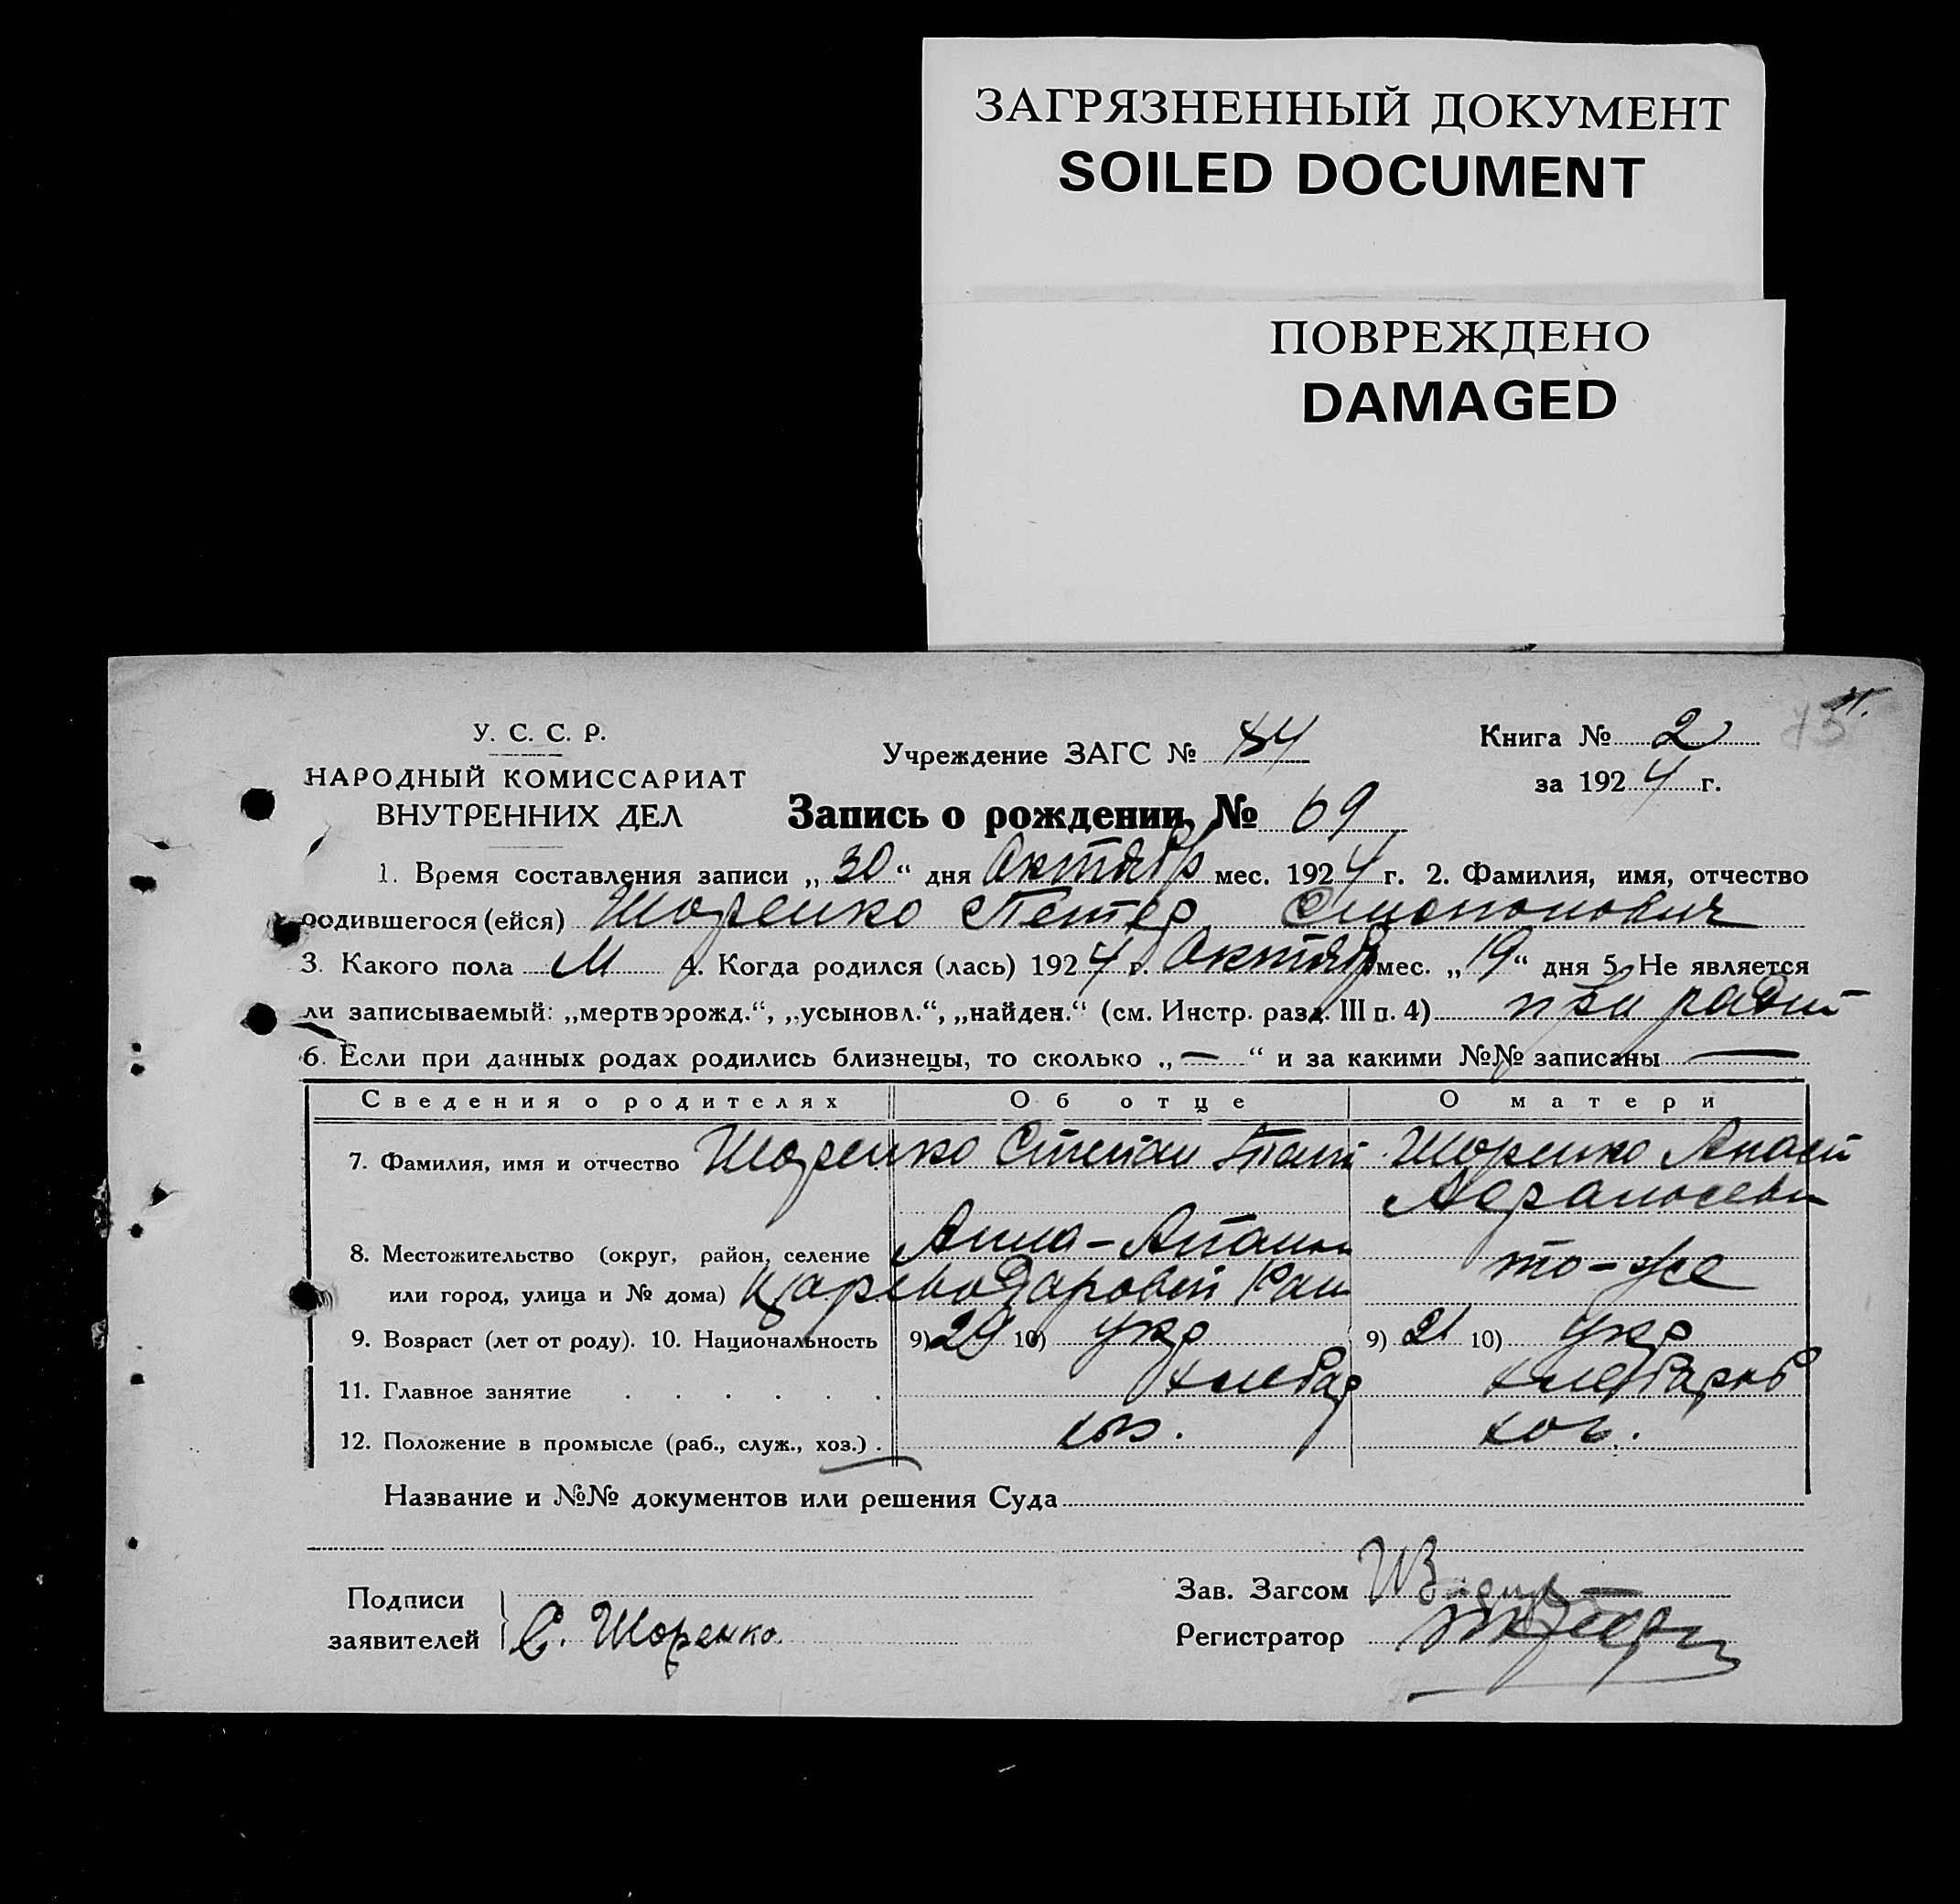 ЗАГРЯЗНЕННЫЙ ДОКУМЕНТ
SOILED DOCUMENT
ПОВРЕЖДЕНО
DAMAGED
У. С. С. Р.
НАРОДНЫЙ КОМИССАРИАТ
ВНУТРЕННИХ ДЕЛ
Учреждение ЗАГС №
Книга № 2
за 1924 г.
Запись о рождении № 69
1. Время составления записи „30“ дня Октябр мес. 1924 г. 2. Фамилия, имя, отчество
родившегося (ейся) Шоренко Петер
3. Какого пола М 4. Когда родился (лась) 1924 г. Октябр мес. „19“ дня 5. Не является
ли записываемый: „мертворожд.“, „усыновл.“, „найден.“ (см. Инстр. разд. III п. 4)
6. Если при данных родах родились близнецы, то сколько „—“ и за какими №№ записаны —
Сведения о родителях Об отце О матери
7. Фамилия, имя и отчество Шоренко Степан Шоренко
8. Местожительство (округ, район, селение Анна-
или город, улица и № дома) то-же
9. Возраст (лет от роду). 10. Национальность 9) 29 10) укр 9) 21 10) укр
11. Главное занятие . . . . . . хлебар
12. Положение в промысле (раб., служ., хоз.) . хоз. хоз.
Название и №№ документов или решения Суда
Подписи
заявителей С. Шоренко.
Зав. Загсом
Регистратор